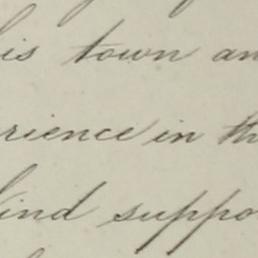 is town an
rience in th
ind suppo